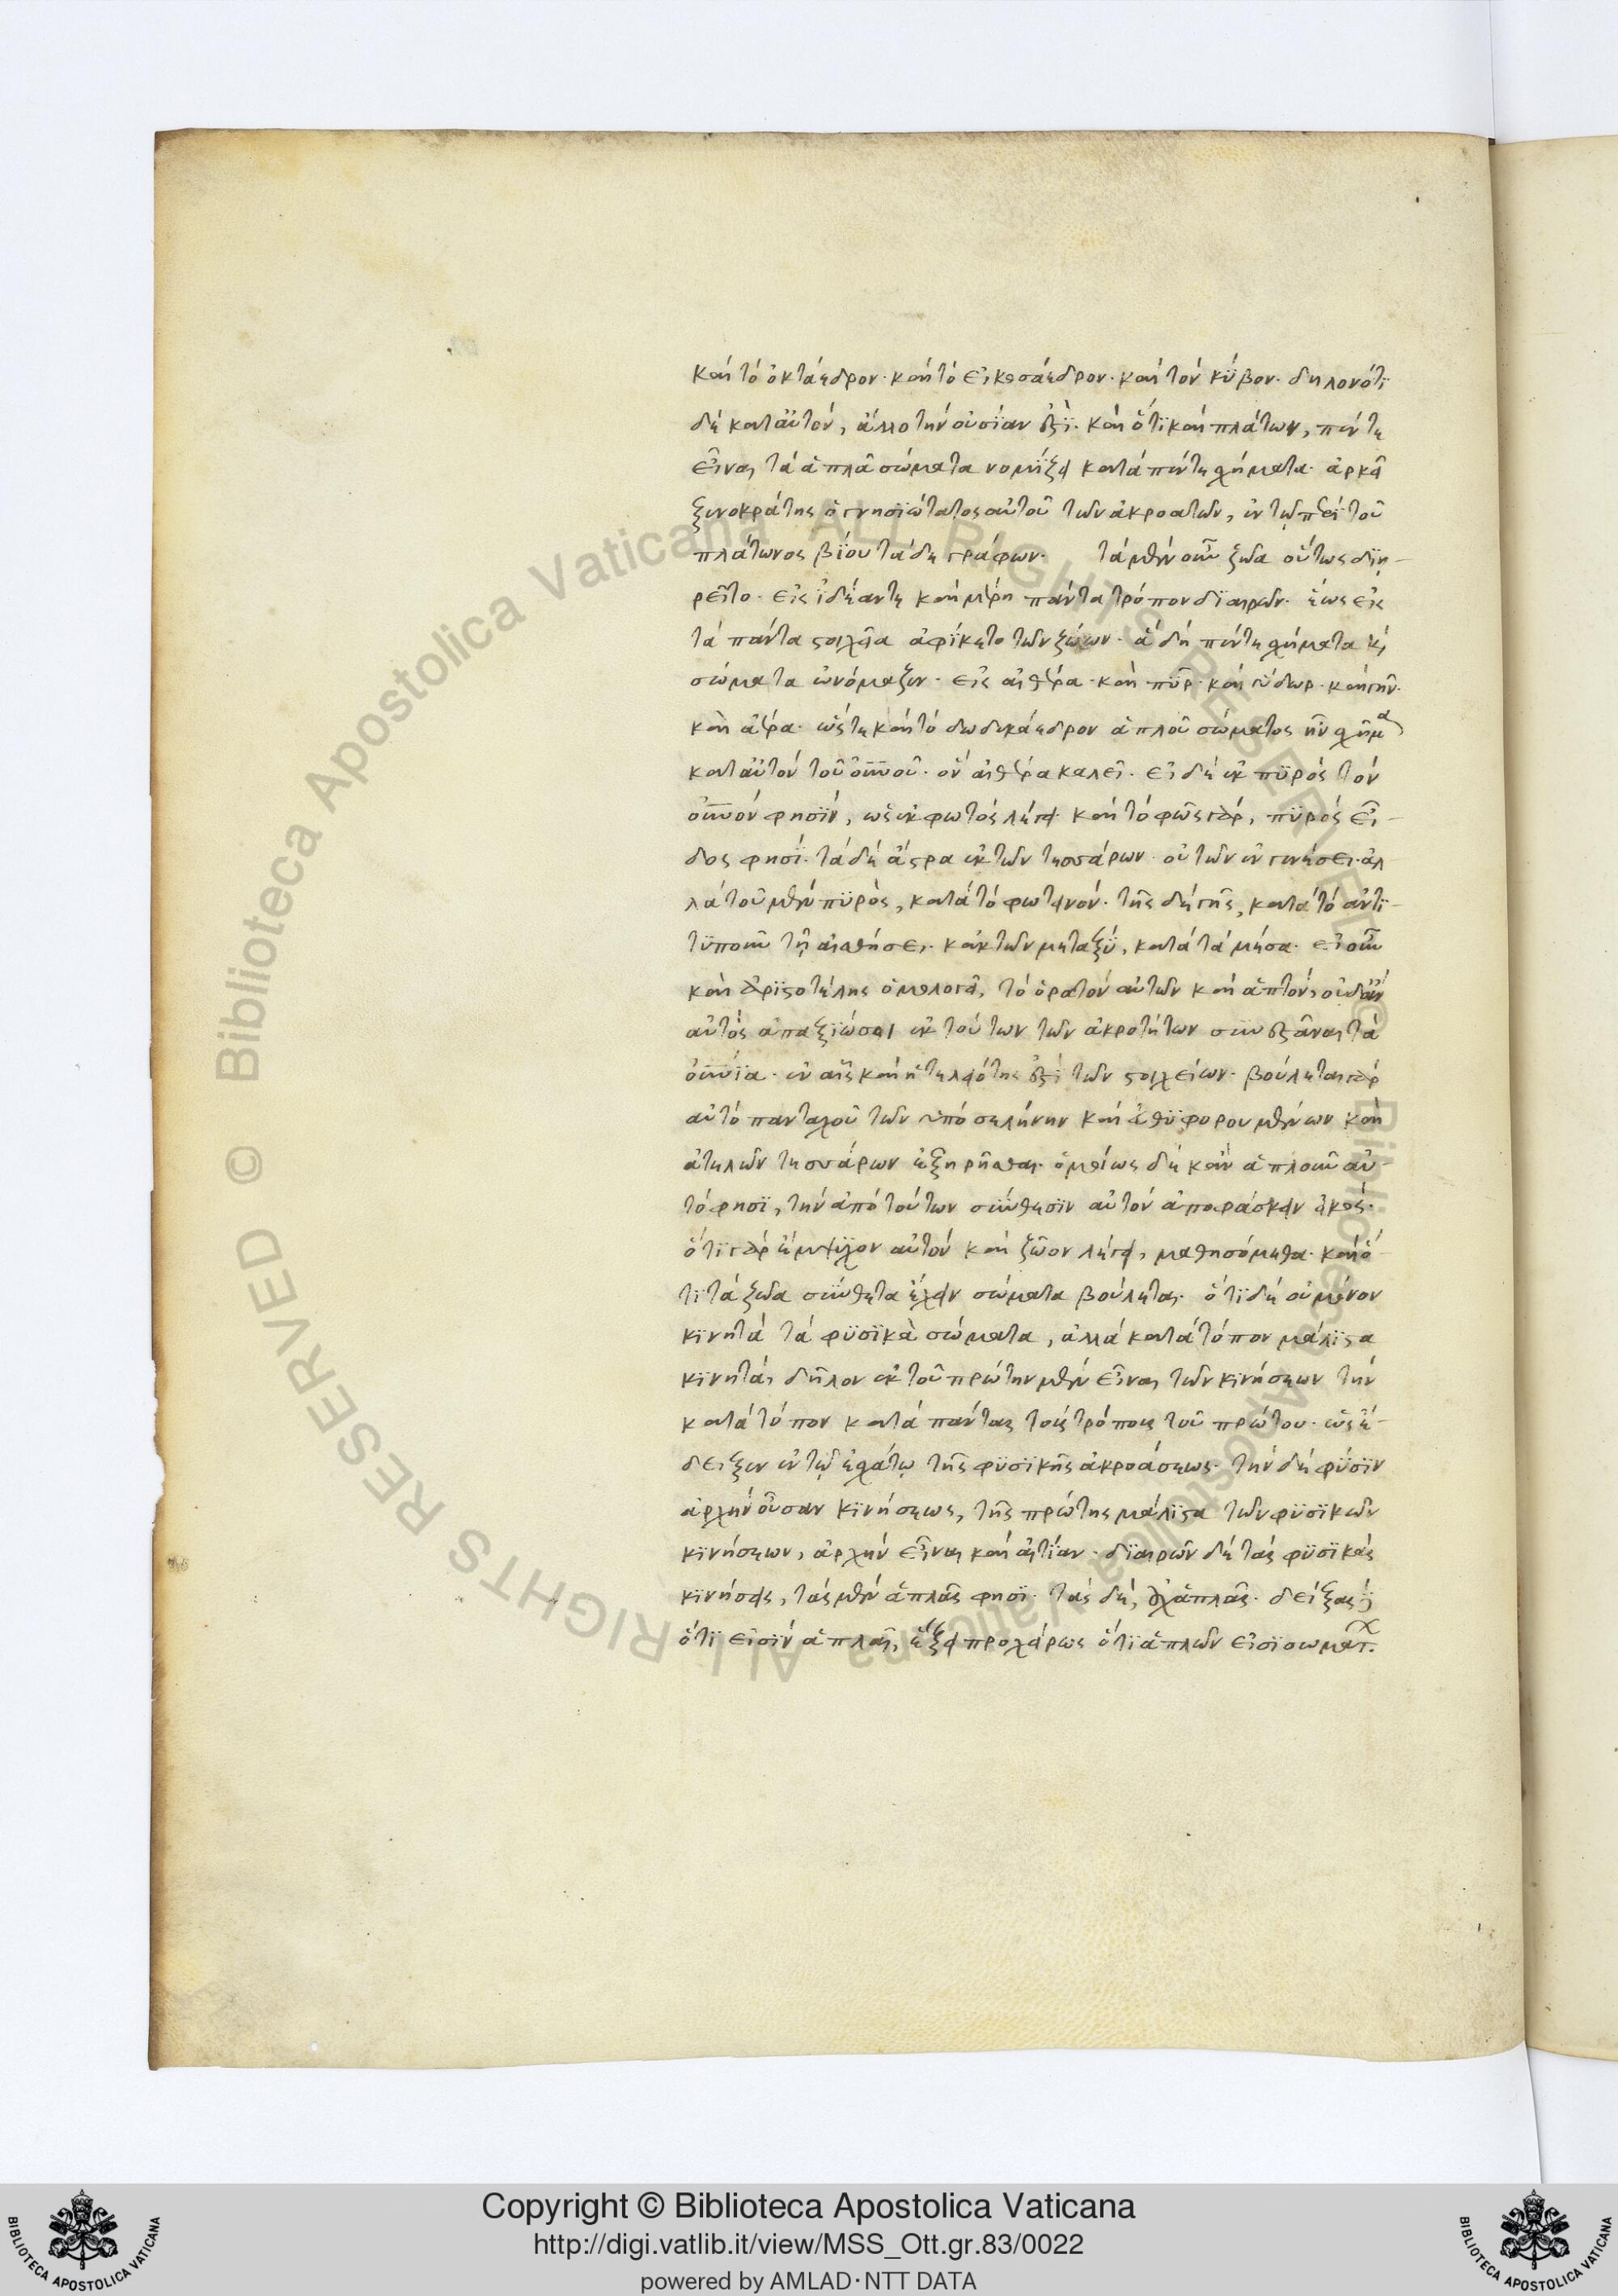 καὶ τὸ ὀκτάεδρον· καὶ τὸ εἰκοσάεδρον· καὶ τὸν κύβον· δηλονότι
δὲ κατ αὐτὸν, ἄλλο τὴν οὐσίαν ἐστί· καὶ ὅτι καὶ πλάτων, πέντε
εἶναι τὰ ἁπλᾶ σώματα νομίζει κατὰ πέντε σχήματα· ἀρκεῖ
ξενοκράτης ὁ γνησιώτατος αὐτοῦ τῶν ἀκροατῶν, ἐν τῷ περὶ τοῦ
πλάτωνος βίου τάδε γράφων· τὰ μὲν οὖν ζῶα οὕτως διῃ-
ρεῖτο· εἰς ἰδέαν τε καὶ μέρη πάντα τρόπον διαιρῶν· ἕως εἰς
τὰ πάντα στοιχεῖα ἀφίκετο τῶν ζώων· ἃ δὴ πέντε σχήματα καὶ
σώματα ὠνόμαζεν· εἰς αἰθέρα· καὶ πῦρ· καὶ ὕδωρ· καὶ γῆν·
καὶ ἀέρα· ὥστε καὶ τὸ δωδεκάεδρον ἁπλοῦ σώματος ἦν σχῆμα
κατ αὐτὸν τοῦ οὐνοῦ· ὃν αἰθέρα καλεῖ· εἰ δὲ ἐκ πυρὸς τὸν
οὐνόν φησίν, ὡς ἐκ φωτὸς λέγει· καὶ τὸ φῶς γὰρ, πυρὸς εἶ-
δος φησί· τὰ δὲ ἄστρα ἐκ τῶν τεσσάρων· οὐ τῶν ἐν γενέσει· ἀλ
λὰ τοῦ μὲν πυρὸς, κατὰ τὸ φωτεινόν· τῆς δὲ γῆς, κατὰ τὸ ἀντι-
τυποῦν τῇ αἰσθήσει· κἀκ τῶν μεταξὺ, κατὰ τὰ μέσα· εἰ οὖν
καὶ ἀριστοτέλης ὁμολογεῖ, τὸ ὁρατὸν αὐτῶν καὶ ἁπτόν, οὐδ ἂν
αὐτὸς ἀπαξιώσοι ἐκ τούτων τῶν ἀκροτήτων συνεστάναι τὰ
οὐνια· ἐν αἷς καὶ ἡ τελειότης ἐστὶ τῶν στοιχείων· βούλεται γὰρ
αὐτὸ πανταχοῦ τῶν ὑπὸ σελήνην καὶ εὐθυφορουμένων καὶ
ἀτελῶν τεσσάρων ἐξῃρῆσθαι· ὁμοίως δὲ κἂν ἁπλοῦν αὐ-
τό φησι, τὴν ἀπὸ τούτων σύνθεσιν αὐτὸν ἀποφάσκειν εἰκός·
ὅτι γὰρ ἔμψυχον αὐτὸν καὶ ζῶον λέγει, μαθησόμεθα· καὶ ὅ-
τι τὰ ζῶα σύνθετα ἔχειν σώματα βούλεται· ὅτι δὲ οὐ μόνον
κινητὰ τὰ φυσικὰ σώματα, ἀλλὰ κατὰ τόπον μάλιστα
κινητὰ, δῆλον ἐκ τοῦ πρώτην μὲν εἶναι τῶν κινήσεων τὴν
κατὰ τόπον κατὰ πάντας τοὺς τρόπους τοῦ πρώτου· ὡς ἔ-
δειξεν ἐν τῷ ἐσχάτῳ τῆς φυσικῆς ἀκροάσεως· τὴν δὲ φύσιν
ἀρχὴν οὖσαν κινήσεως, τῆς πρώτης μάλιστα τῶν φυσικῶν
κινήσεων, ἀρχὴν εἶναι καὶ αἰτίαν· διαιρῶν δὲ τὰς φυσικὰς
κινήσεις, τὰς μὲν ἁπλᾶς φησι· τὰς δὲ, οὐχ ἁπλᾶς· δείξας
ὅτι εἰσὶν ἁπλαῖ, ἕξει προχείρως ὅτι ἁπλῶν εἰσι σωμάτ.